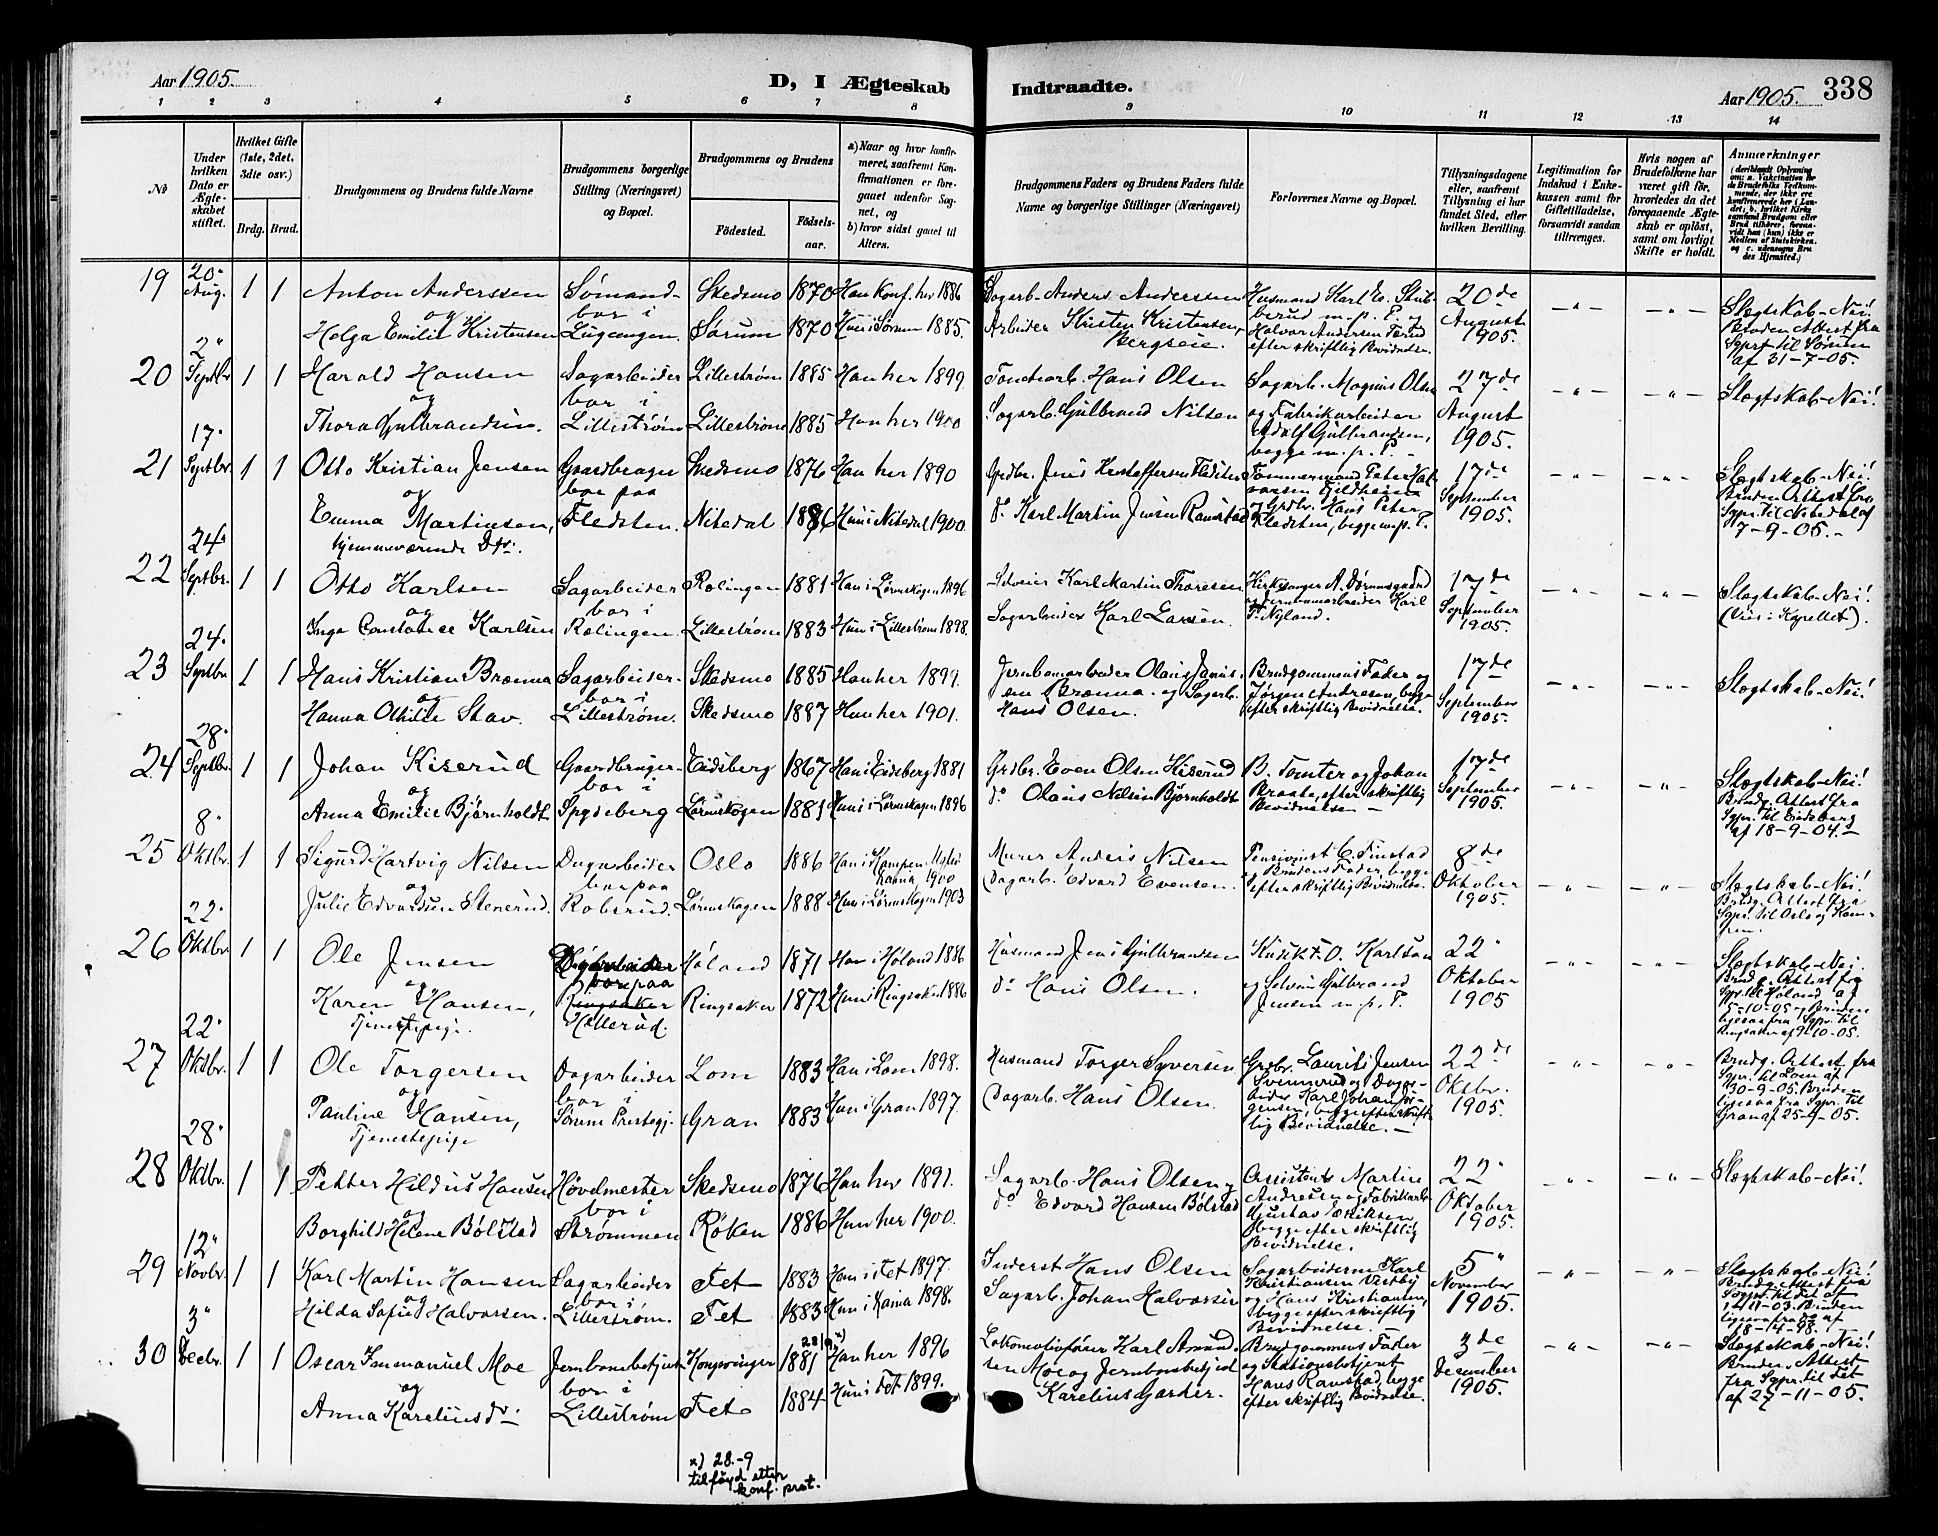 Aar 1905.
D, I Ægteskab Indtraadte.
Aar 1905. 338
1 2 3 4 5 6 7 8 9 10 11 12 13 14
No
Under hvilken Dato er Ægteskabet stiftet.
Hvilket Gifte (1ste, 2det, 3die osv.)
Brdg. Brud.
Brudgommens og Brudens fulde Navne
Brudgommens borgerlige Stilling (Næringsvei) og Bopæl.
Brudgommens og Brudens
Födested. Födsels-aar.
a) Naar og hvor konfirmeret, saafremt Konfirmationen er foregaaet udenfor Sognet, og
b) hvor sidst gaaet til Alters.
Brudgommens Faders og Brudens Faders fulde Navne og borgerlige Stillinger (Næringsvei)
Forlovernes Navne og Bopæl.
Tillysningsdagene eller, saafremt Tillysning ei har fundet Sted, efter hvilken Bevilling.
Legitimation for Indskud i Enkekassen samt for Giftetilladelse, forsaavidt saadan tiltrænges.
Hvis nogen af Brudefolkene har været gift för, hvorledes da det foregaaende Ægteskab er oplöst, samt om lovligt Skifte er holdt.
Anmærkninger
19 20. Aug. 1 1 Anton Anderssen
og
Helga Emilie Kristensen
Sømand bor i
Skedsmo 1870 Han konf. her 1886
Sørum 1870 Hun i Sørum 1885.
Sagarb. Anders Anderssen
Arbeider Kristen Kristensen,
efter skriftlig Bevidnelse.
20de August 1905.
Slægtskab-Nei!
Bruden Attest fra
Sgpr. til Sørum
af 31-7-05.
20 2" Septbr 1 1 Harald Hansen
og
Thora Gulbrandsen.
Sagarbeider
bor i
Lillestrøm
Lillestrøm 1885 Han her 1899.
Lillestrøm 1885 Hun her 1900
Tomtearb. Hans Olsen
Sagarb. Gulbrand Nilsen
Sagarb. Magnus Olsen
og Fabrikarbeider
Adolf Gulbrandsen,
begge m. p. P.
27de August 1905.
Slægtskab-Nei!
21 17. Septbr. 1 1 Otto Kristian Jensen
og
Emma Martinsen,
hjemmeværende Dtr.
Gaardbruger
bor paa
Fledsten.
Skedsmo 1876 Han her 1890
Nitedal 1886 Hun i Nitedal 1900
Do Karl Martin Jensen Ramstad
Tømmermand Peter Halvorsen Fjeldheim
og Grdbr. Hans Peter
Fledsten, begge m. p. P.
17de September 1905.
Slægtskab-Nei!
Bruden Attest fra
Sgpr. til Nitedal af
7-9-05.
22 24. Septbr. 1 1 Otto Karlsen
og
Inga Constance Karlsen
Sagarbeider
bor i
Rælingen.
Rælingen 1881 Han i Lørenskogen 1896
Lillestrøm 1883 Hun i Lillestrøm 1898.
Selveier Karl Martin Thoresen
Sagarbeider Karl Larsen.
17de September 1905.
Slægtskab-Nei!
(Viet i Kapellet).
23 24. Septbr 1 1 Hans Kristian Brænna
og
Hanna Othilie Stav.
Sagarbeider
bor i
Lillestrøm.
Skedsmo 1885 Han her 1899.
Skedsmo 1887 Hun her 1901.
Brænna og Sagarb.
Hans Olsen.
Brudgommens Fader og
Jørgen Andresen, begge
efter skriftlig Bevidnelse.
17de September 1905.
Slægtskab-Nei!
24 28. Septbr. 1 1 Johan Kiserud
og
Anna Emilie Bjørnholdt
Gaardbruger
bor i
Spydeberg
Eidsberg 1867 Han i Eidsberg 1881
Lørenskogen 1881 Hun i Lørenskogen 1896
Grdbr. Even Olsen Kiserud
Do Olaus Nilsen Bjørnholdt
B. Tomter og Johan
Braate, efter skriftlig
Bevidnelse
17de September 1905.
Slægtskab-Nei!
Brudg. Attest fra
Sgpr. til Eidsberg
af 18-9-04.
25 8. Oktbr. 1 1 Sigurd Hartvig Nilsen
og
Julie Edvardsen Stenerud.
Dagarbeider
bor paa
Robsrud.
Oslo 1886
Lørenskogen 1888 Hun i Lørenskogen 1903
Murer Anders Nilsen
Dagarb. Edvard Evensen.
Brudens Fader, begge
efter skriftlig Bevidnelse.
8de Oktober 1905.
Slægtskab-Nei!
Brudg. Attest fra
Sgpr. til Oslo og Kampen.
26 22. Oktbr. 1 1 Ole Jensen
og
Karen Hansen,
Tjenestepige.
Dagarbeider
bor paa
Ringsaker
Høland 1871 Han i Høland 1886
Ringsaker 1872 Hun i Ringsaker 1886
Husmand Jens Gulbrandsen
Do Hans Olsen.
Kusk O. Karlsen
og Gulbrand
Jensen m. p. P.
22. Oktober 1905
Slægtskab-Nei.
Brudg. Attest fra
Sgpr. til Høland af
5-10-05, Bruden
ligesaa fra Sgpr. til
Ringsaker af 9-10-05.
27 22. Oktbr. 1 1 Ole Torgersen
og
Pauline Hansen,
Tjenestepige
Dagarbeider
bor i
Sørum Prestegj.
Lom 1883 Han i Lom 1898.
Gran 1883 Hun i Gran 1897.
Husmand Torger Syversen
Dagarb. Hans Olsen.
Grdbr. Laurits Jensen
Svennerud og Dagarbeider Karl Johan Jørgensen, begge efter skriftlig Bevidnelse.
22de Oktbr. 1905.
Brudg. Attest fra
Sgpr. til Lom af
30-9-05. Bruden
ligesaa fra Sgpr. til
Gran af 25-9-05.
28 28. Oktbr. 1 1 Petter Hildus Hansen
og
Borghild Helene Bølstad
Høvelmester
bor i
Strømmen
Skedsmo 1876 Han her 1891.
Røken 1886 Hun her 1900.
Sagarb. Hans Olsen
Do Edvard Hansen Bølstad
Assistent Martin
Andresen og Fabrikarb.
Gustav Eriksen
begge efter skriftlig
Bevidnelse.
22. Oktober 1905.
Slægtskab-Nei!
29 12. Novbr. 1 1 Karl Martin Hansen
og
Hilda Sofie Halvorsen.
Sagarbeider
bor i
Lillestrøm.
Fet 1883 Han i Fet 1897.
Fet 1883 Hun i Kania 1898.
Inderst Hans Olsen
Sagarb. Johan Halvorsen
Sagarbeiderne Karl
Kristiansen Vestby
og Hans Kristiansen,
begge efter skriftlig
Bevidnelse.
5" November 1905.
Slægtskab-Nei!
Brudg. Attest fra
30 3" Decbr. 1 1 Oscar Immanuel Moe
og
Anna Kareliusdr.
Jernbanebetjent
bor i
Lillestrøm
Kongsvinger 28/9 1881 x) Han her 1896
Fet 1884 Hun i Fet 1899.
Lokomotivfører Karl Amundsen Moe og Jernbanebetjent
Karelius Garder.
Brudgommens Fader
og Stationsbetjent
Hans Ramstad, begge
efter skriftlig Bevidnelse.
3de December 1905.
Slægtskab-Nei!
Bruden Attest
fra Sgpr. til Fet
af 27-11-05.
x) 28.-9
tilføyd etter
konf. prot.